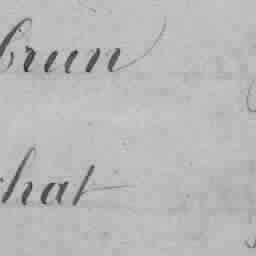 brun
hat